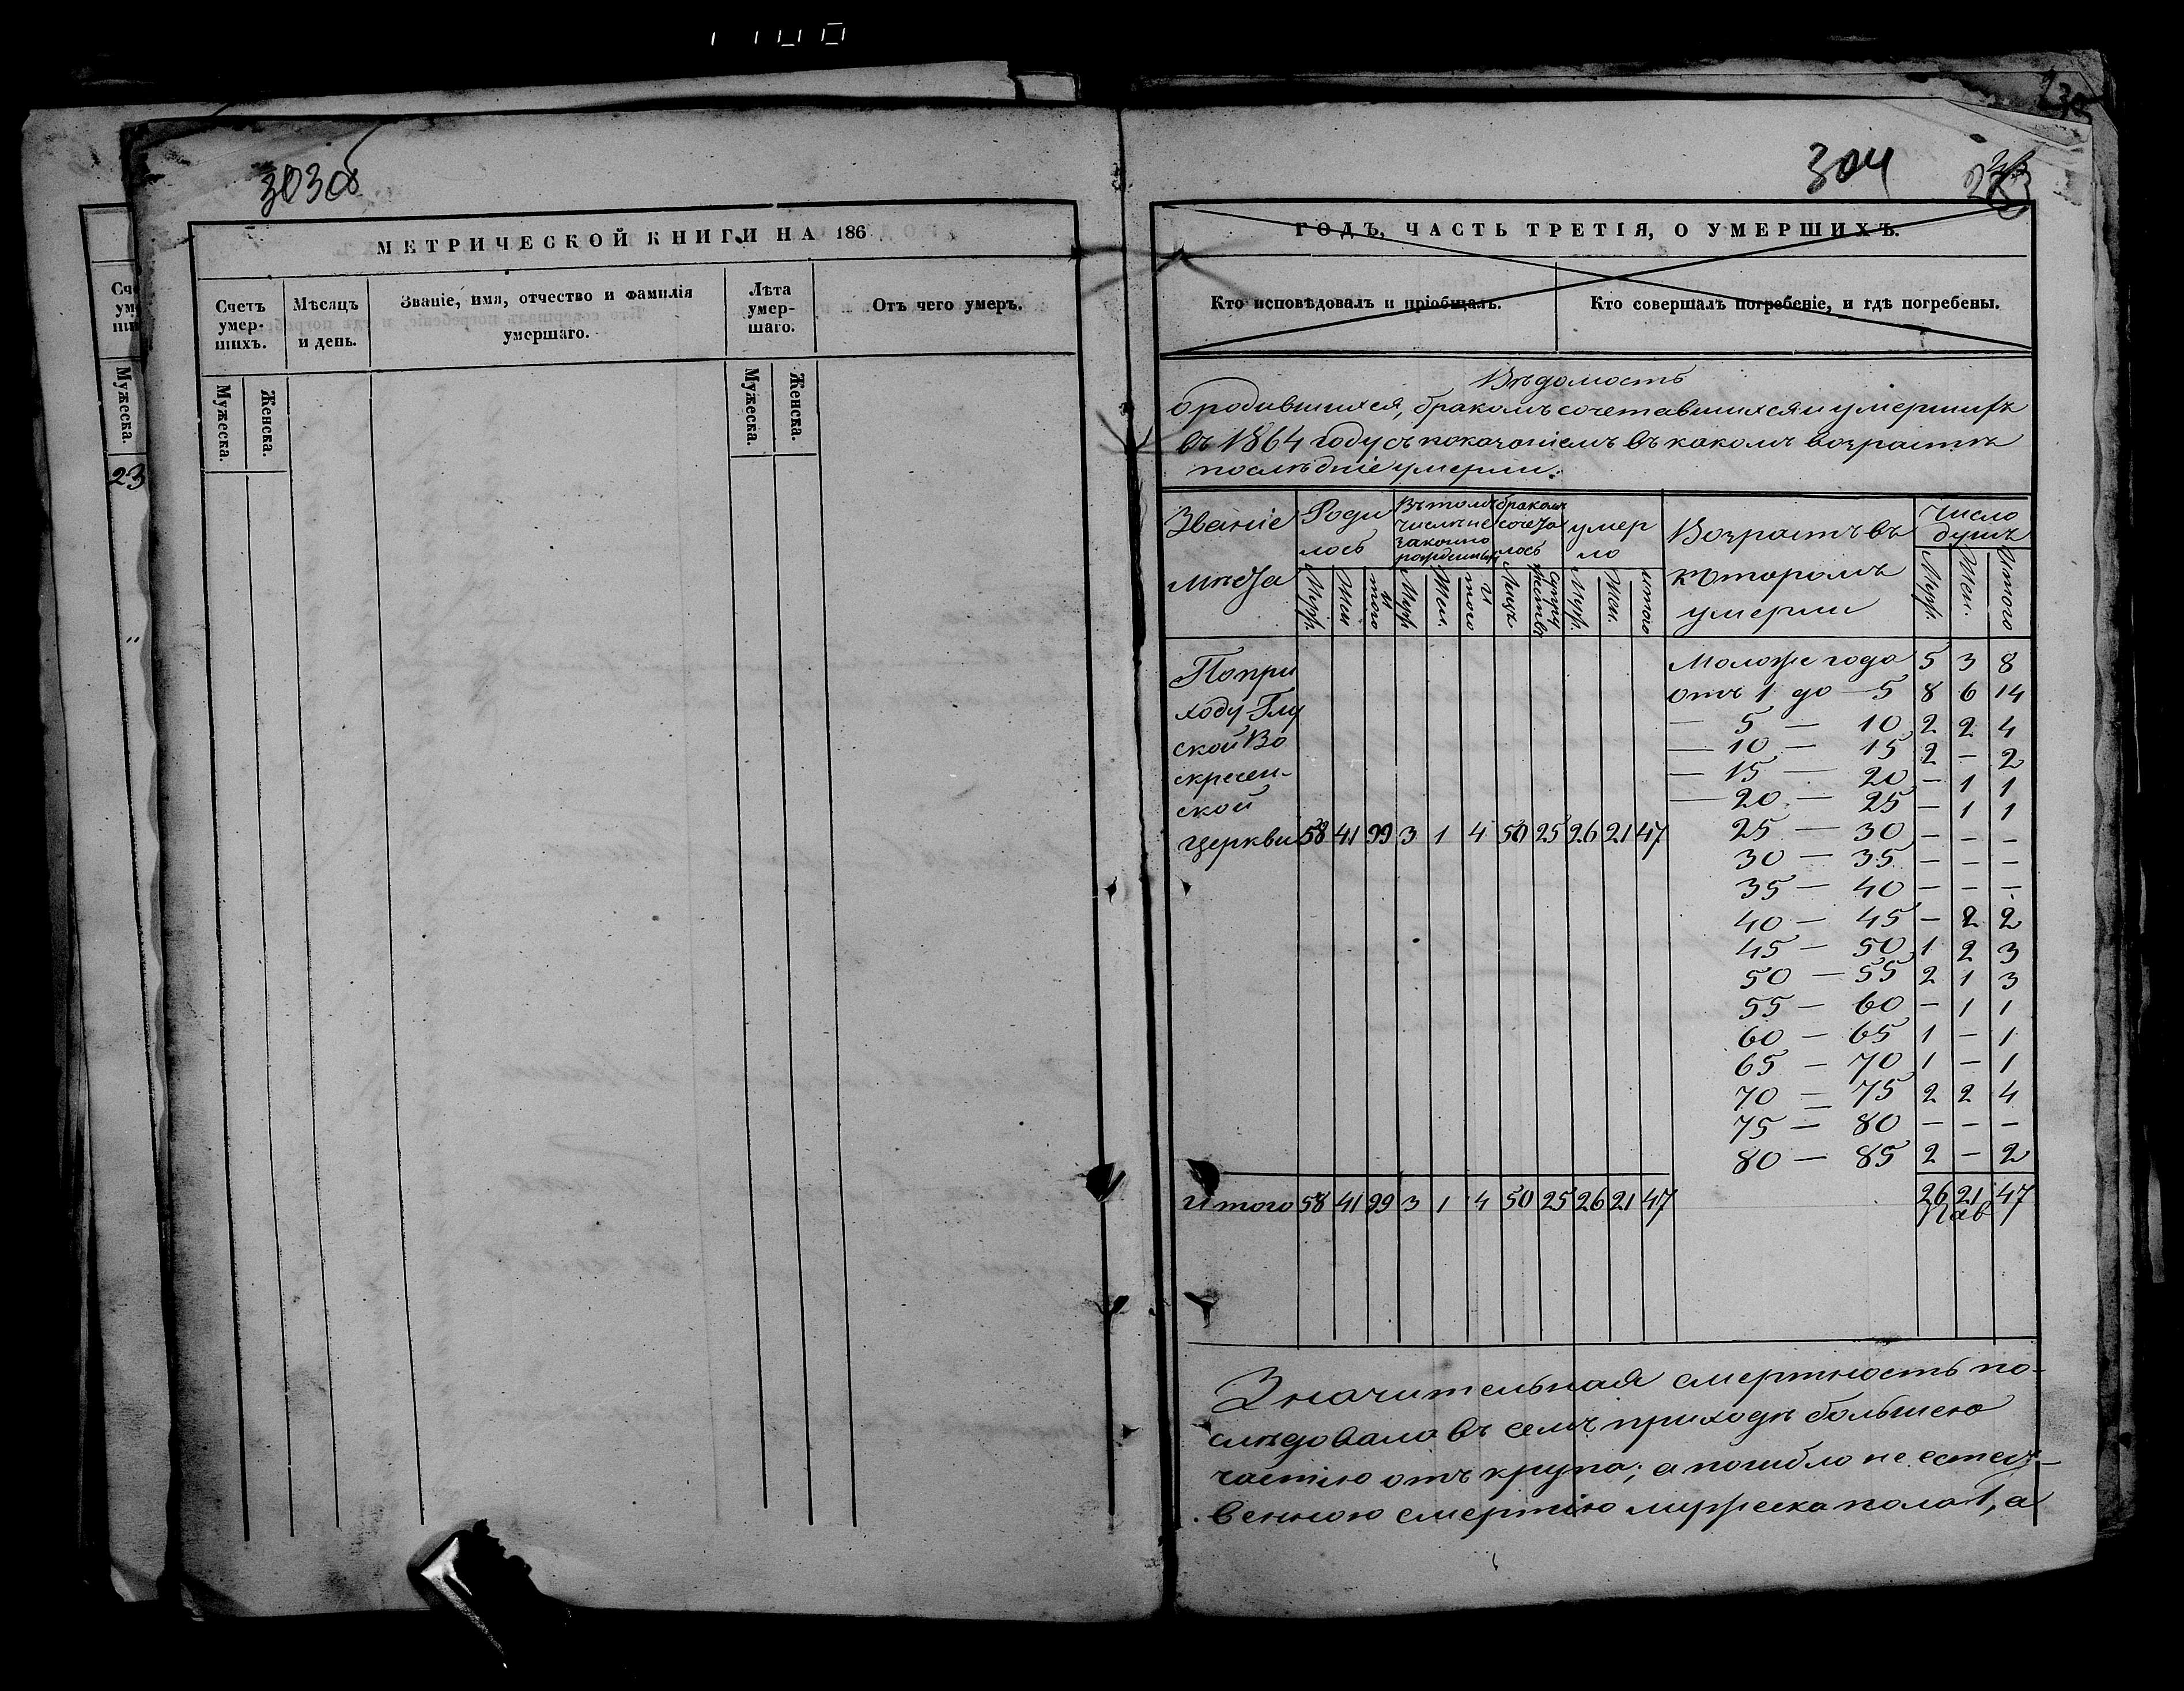 303об
МЕТРИЧЕСКОЙ КНИГИ НА 186
Счетъ умер-шихъ.
Мѣсяцъ и день.
Званіе, имя, отчество и фамилія умершаго.
Лѣта умер-шаго.
Отъ чего умеръ.
Мужеска.
Женска.
Мужеска.
Женска.
Мужеска.
23
304
ГОДЪ, ЧАСТЬ ТРЕТІЯ, О УМЕРШИХЪ.
Кто исповѣдовалъ и пріобщалъ.
Кто совершалъ погребеніе, и гдѣ погребены.
Вѣдомость
о родившихся, бракомъ сочетавшихся и умершихъ
въ 1864 году съ показаніемъ въ какомъ возрастѣ
послѣдніе умерли.
Званіе мѣста
Родилось
Въ томъ числѣ незаконно рожденныхъ
бракомъ сочеталось
умерло
Возрастъ въ которомъ умерли
Число душъ
Муж. Жен. Итого Муж. Жен. Итого Лицъ Супружествъ Муж. Жен. итого
Муж. Жен. Итого
По при
ходу Глу
ской Во
скресен-
ской
церкви 58 41 99 3 1 4 50 25 26 21 47
Моложе года 5 3 8
отъ 1 до 5 8 6 14
— 5 — 10 2 2 4
— 10 — 15 2 – 2
— 15 — 20 – 1 1
— 20 — 25 – 1 1
25 — 30 – – –
30 — 35 – – –
35 — 40 – – –
40 — 45 – 2 2
45 — 50 1 2 3
50 — 55 2 1 3
55 — 60 – 1 1
60 — 65 1 – 1
65 — 70 1 – 1
70 — 75 2 2 4
75 — 80 – – –
80 — 85 2 – 2
Итого 58 41 99 3 1 4 50 25 26 21 47
26 21 47
Значительная смертность по-
слѣдовала въ семъ приходѣ большею
частію отъ крупа; а погибло не естест-
венною смертію мужеска пола 1, а